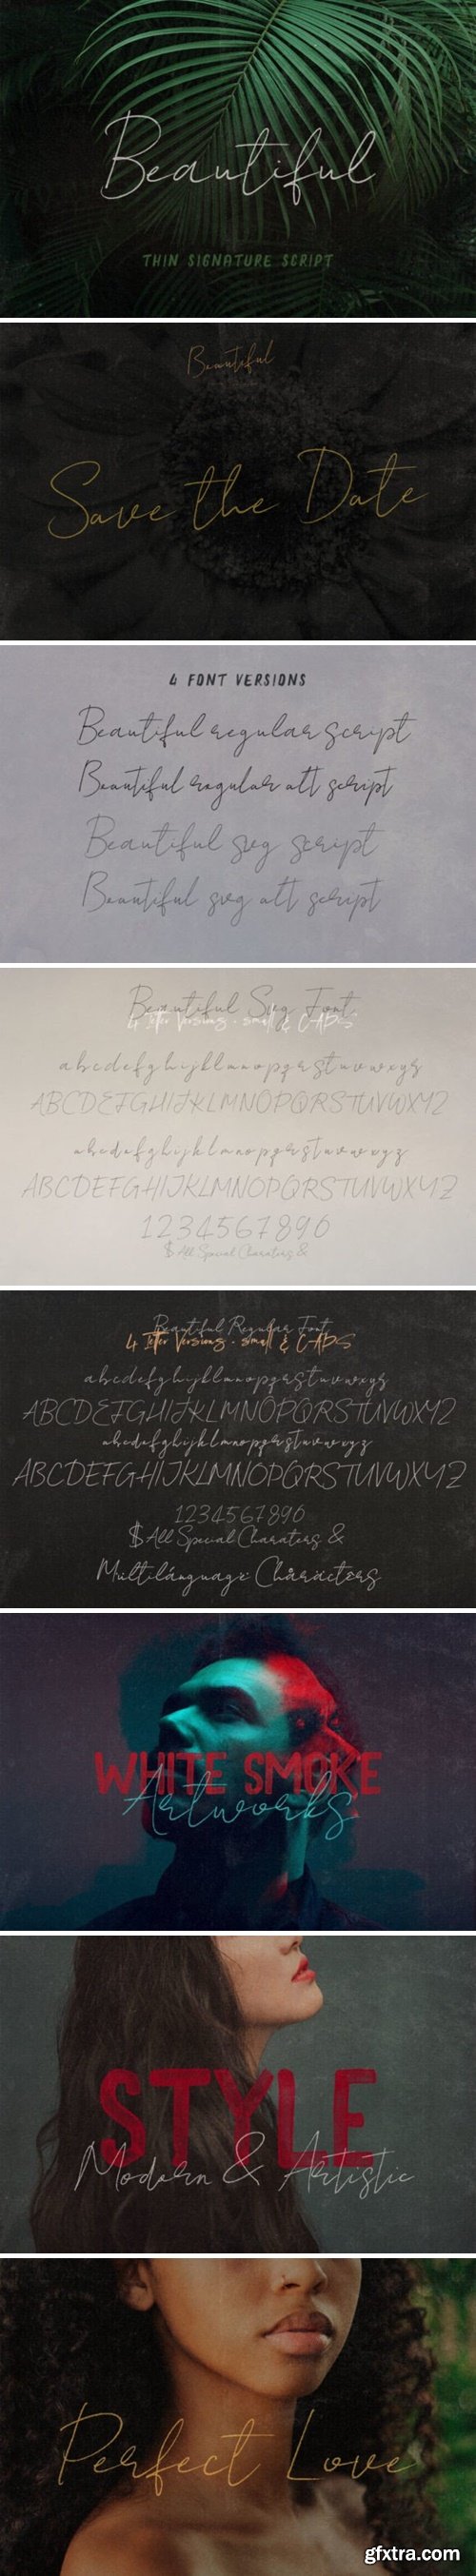 Beautiful
THIN SIGNATURE SCRIPT
Beautiful
Save the Date
4 FONT VERSIONS
Beautiful regular script
Beautiful regular alt script
Beautiful svg script
Beautiful svg alt script
Beautiful Svg Font
4 letter Versions - small & CAPS
abcdefghijklmnopqrstuvwxyz
ABCDEFGHIJKLMNOPQRSTUVWXYZ
abcdefghijklmnopqrstuvwxyz
ABCDEFGHIJKLMNOPQRSTUVWXYZ
1234567890
$ All Special Charaters &
Beautiful Regular Font
4 letter Versions - small & CAPS
abcdefghijklmnopqrstuvwxyz
ABCDEFGHIJKLMNOPQRSTUVWXYZ
abcdefghijklmnopqrstuvwxyz
ABCDEFGHIJKLMNOPQRSTUVWXYZ
1234567890
$ All Special Charaters &
WHITE SMOKE
Artworks
STYLE
Modern & Artistic
Perfect Love
gfxtra.com